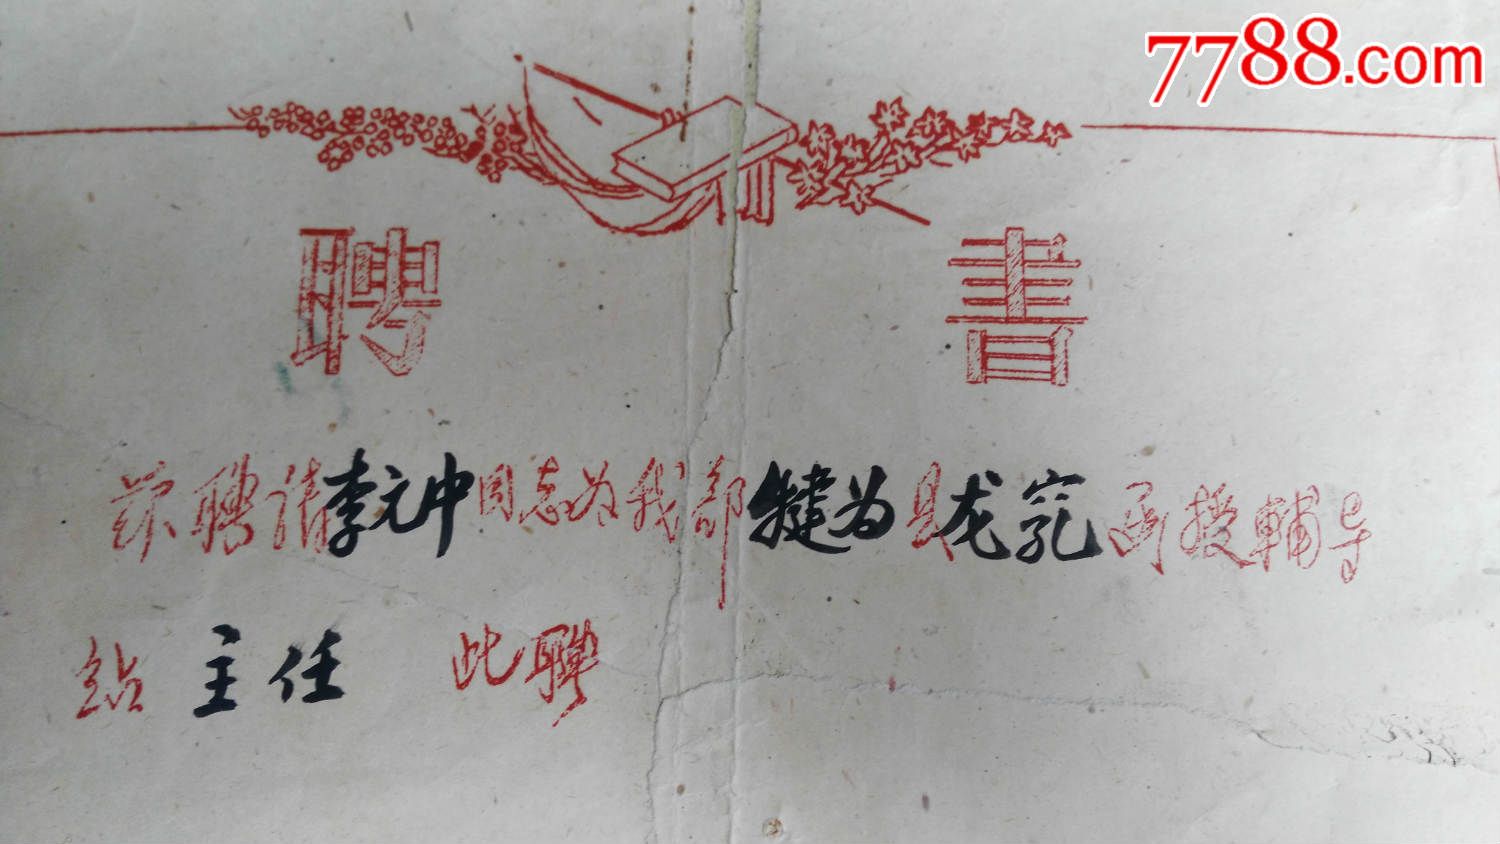 7788.com
聘書
兹聘请李元中同志为我部犍为县龙窝函授輔导
站主任 此聘